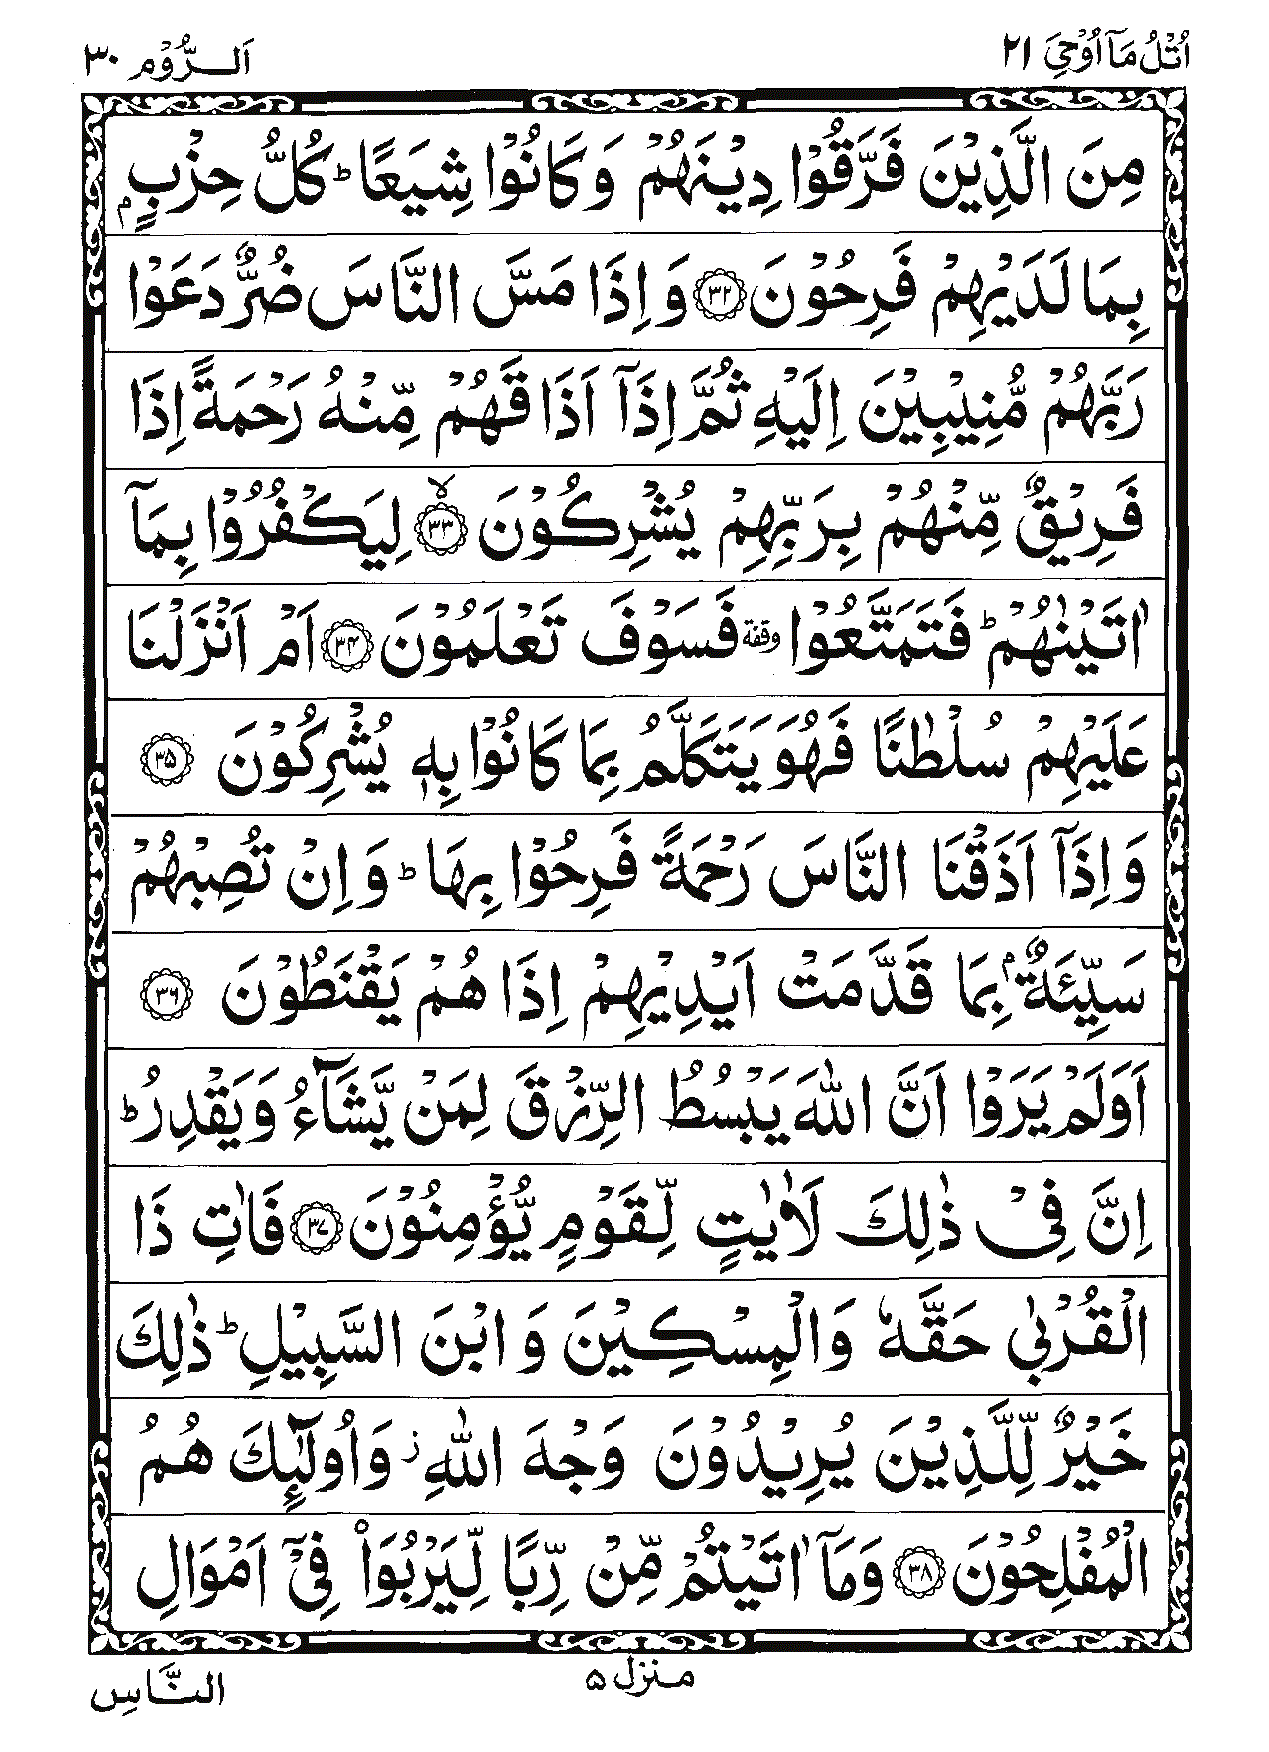 اُتْلُ مَاۤ اُوْحِیَ ۲۱
اَلرُّوْم ۳۰
مِنَ الَّذِیْنَ فَرَّقُوْا دِیْنَهُمْ وَ كَانُوْا شِیَعًا ؕ كُلُّ حِزْبٍۭ
بِمَا لَدَیْهِمْ فَرِحُوْنَ ﴿۳۲﴾ وَ اِذَا مَسَّ النَّاسَ ضُرٌّ دَعَوْا
رَبَّهُمْ مُّنِیْبِیْنَ اِلَیْهِ ثُمَّ اِذَاۤ اَذَاقَهُمْ مِّنْهُ رَحْمَةً اِذَا
فَرِیْقٌ مِّنْهُمْ بِرَبِّهِمْ یُشْرِكُوْنَ ﴿۳۳﴾ۙ لِیَكْفُرُوْا بِمَاۤ
اٰتَیْنٰهُمْ ؕ فَتَمَتَّعُوْا وقفة فَسَوْفَ تَعْلَمُوْنَ ﴿۳۴﴾ اَمْ اَنْزَلْنَا
عَلَیْهِمْ سُلْطٰنًا فَهُوَ یَتَكَلَّمُ بِمَا كَانُوْا بِهٖ یُشْرِكُوْنَ ﴿۳۵﴾
وَ اِذَاۤ اَذَقْنَا النَّاسَ رَحْمَةً فَرِحُوْا بِهَا ؕ وَ اِنْ تُصِبْهُمْ
سَیِّئَةٌۢ بِمَا قَدَّمَتْ اَیْدِیْهِمْ اِذَا هُمْ یَقْنَطُوْنَ ﴿۳۶﴾
اَوَلَمْ یَرَوْا اَنَّ اللّٰهَ یَبْسُطُ الرِّزْقَ لِمَنْ یَّشَآءُ وَ یَقْدِرُ ؕ
اِنَّ فِیْ ذٰلِكَ لَاٰیٰتٍ لِّقَوْمٍ یُّؤْمِنُوْنَ ﴿۳۷﴾ فَاٰتِ ذَا
الْقُرْبٰى حَقَّهٗ وَ الْمِسْكِیْنَ وَ ابْنَ السَّبِیْلِ ؕ ذٰلِكَ
خَیْرٌ لِّلَّذِیْنَ یُرِیْدُوْنَ وَجْهَ اللّٰهِ ؗ وَ اُولٰٓىِٕكَ هُمُ
الْمُفْلِحُوْنَ ﴿۳۸﴾ وَ مَاۤ اٰتَیْتُمْ مِّنْ رِّبًا لِّیَرْبُوَاۡ فِیْۤ اَمْوَالِ
منزل ۵
النَّاسِ